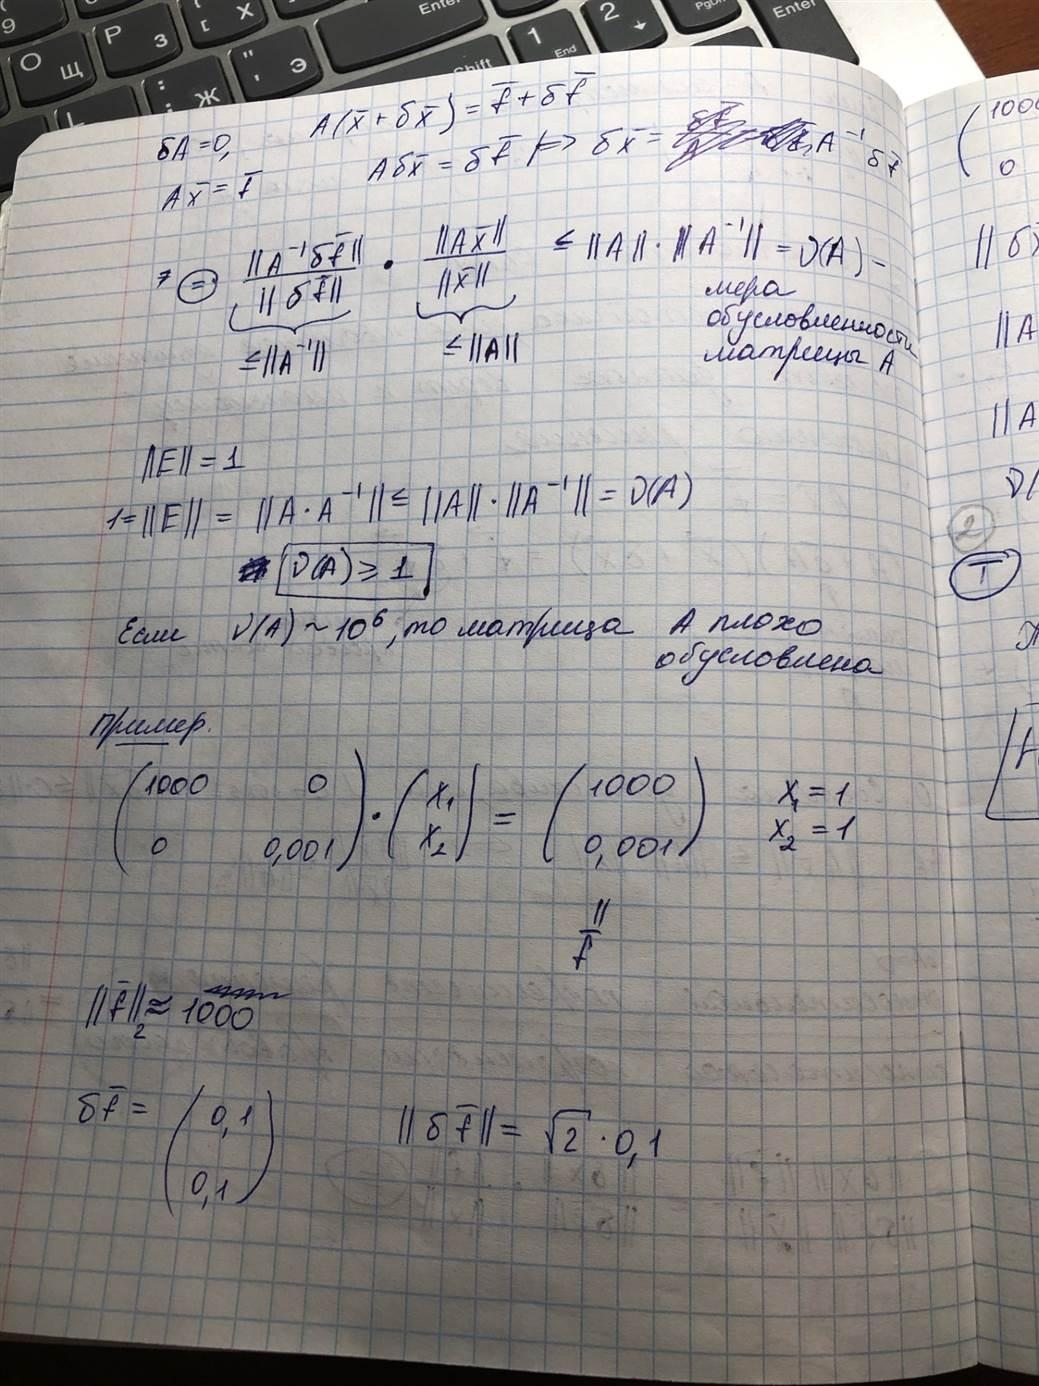 9
Р
З
[
Х
Enter
+
2
PgDn
Enter
О
Щ
;
Ж
" Э
'
Shift
1
End
δA=0,
A(x̄+δx̄) = f̄+δf̄
Ax̄ = f̄
Aδx̄ = δf̄ |=> δx̄ = A⁻¹δf̄
(=) ||A⁻¹δf̄|| / ||δf̄|| · ||Ax̄|| / ||x̄|| ≤ ||A|| · ||A⁻¹|| = ν(A) –
≤||A⁻¹||
≤||A||
мера
обусловленности
матрицы A
||E|| = 1
1=||E|| = ||A·A⁻¹|| ≤ ||A||·||A⁻¹|| = ν(A)
ν(A) ≥ 1
Если ν(A) ~ 10⁶, то матрица A плохо
обусловлена
Пример.
(1000 0
0 0,001) · (x₁
x₂) = (1000
0,001)
x₁ = 1
x₂ = 1
||
f̄
||f̄||₂ ≈ 1000
δf̄ = (0,1
0,1)
||δf̄|| = √2 · 0,1
(1000
0
||δx̄
||A
||A
ν(
2
I